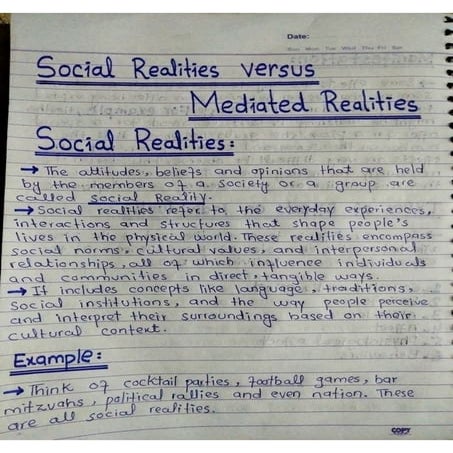 Date:
Sun Mon Tue Wed Thu Fri Sat
Social Realities versus
Mediated Realities
Social Realities:
→ The attitudes, beliefs and opinions that are held
by the members of a society or a group are
called social Reality.
→ Social realities refer to the everyday experiences,
interactions and structures that shape people's
lives in the physical world. These realities encompass
social norms, cultural values, and interpersonal
relationships, all of which influence individuals
and communities in direct, tangible ways.
→ It includes concepts like language, traditions,
social institutions, and the way people perceive
and interpret their surroundings based on their
cultural context.
Example:
→ Think of cocktail parties, football games, bar
mitzvahs, political rallies and even nation. These
are all social realities.
COPY